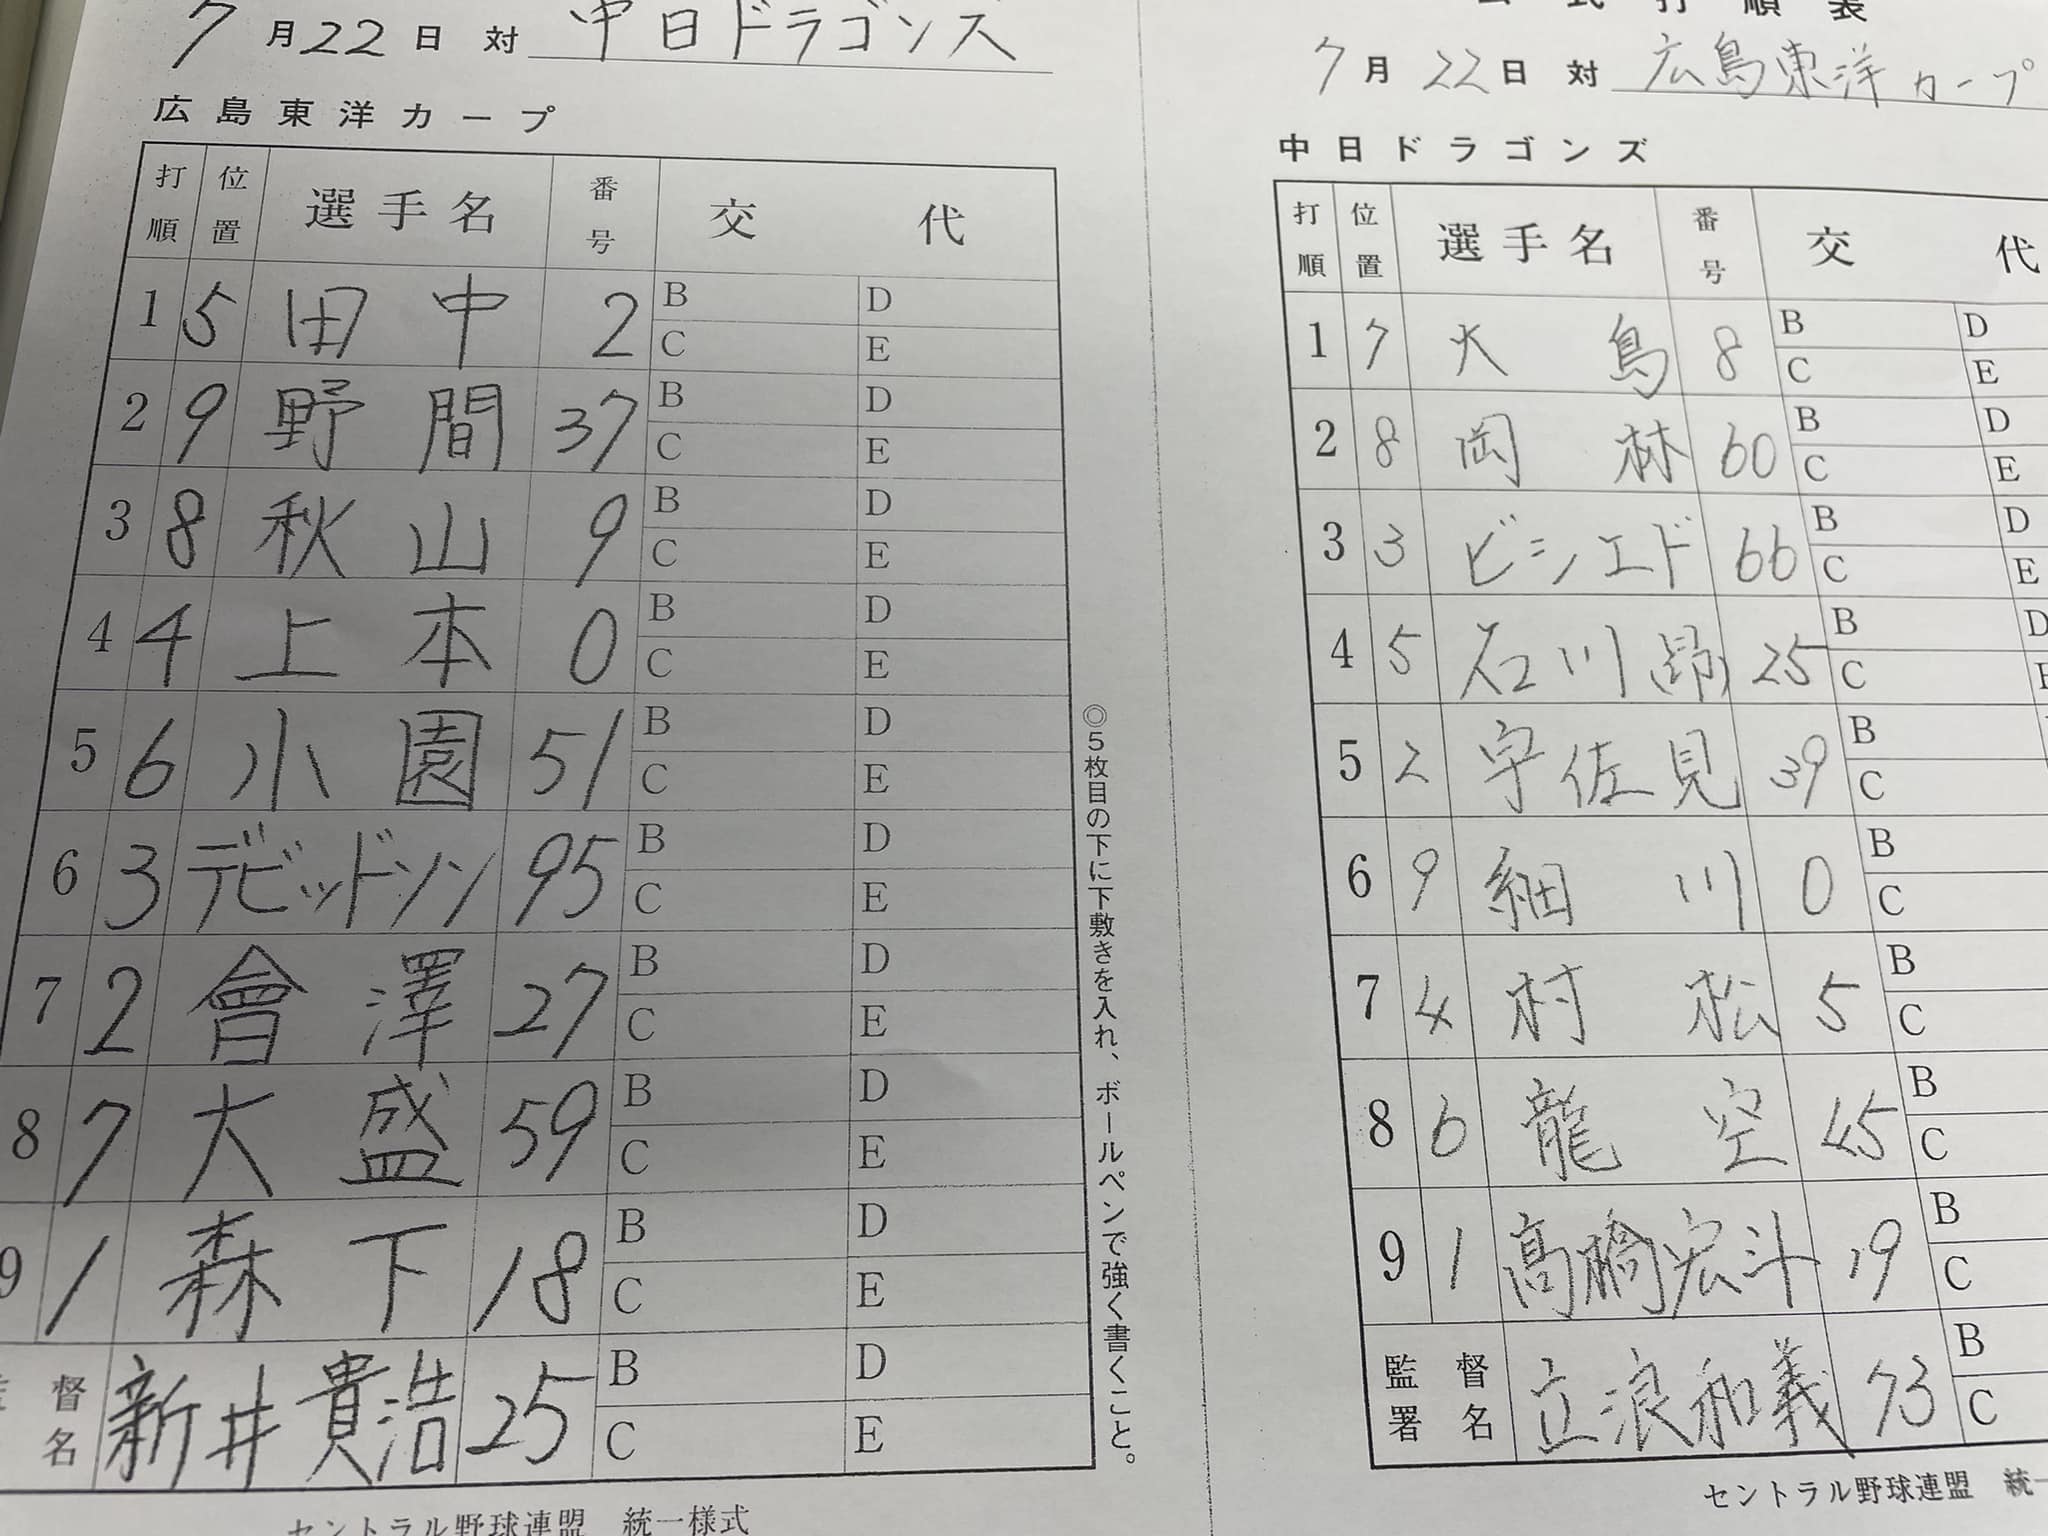 7月22日 対 中日ドラゴンズ
広島東洋カープ
打順 位置 選手名 番号 交代
1 5 田中 2 B C D E
2 9 野間 37 B C D E
3 8 秋山 9 B C D E
4 4 上本 0 B C D E
5 6 小園 51 B C D E
6 3 デビッドソン 95 B C D E
7 2 會澤 27 B C D E
8 7 大盛 59 B C D E
9 1 森下 18 B C D E
督名 新井貴浩 25 B C D E
セントラル野球連盟 統一様式
◎5枚目の下に下敷きを入れ、ボールペンで強く書くこと。
打順表
7月22日 対 広島東洋カープ
中日ドラゴンズ
打順 位置 選手名 番号 交代
1 7 大島 8 B C D E
2 8 岡林 60 B C D E
3 3 ビシエド 66 B C D E
4 5 石川昂 25 B C D E
5 2 宇佐見 39 B C
6 9 細川 0 B C
7 4 村松 5 B C
8 6 龍空 45 B C
9 1 髙橋宏斗 19 B C
監督署名 立浪和義 73 B C
セントラル野球連盟 統一